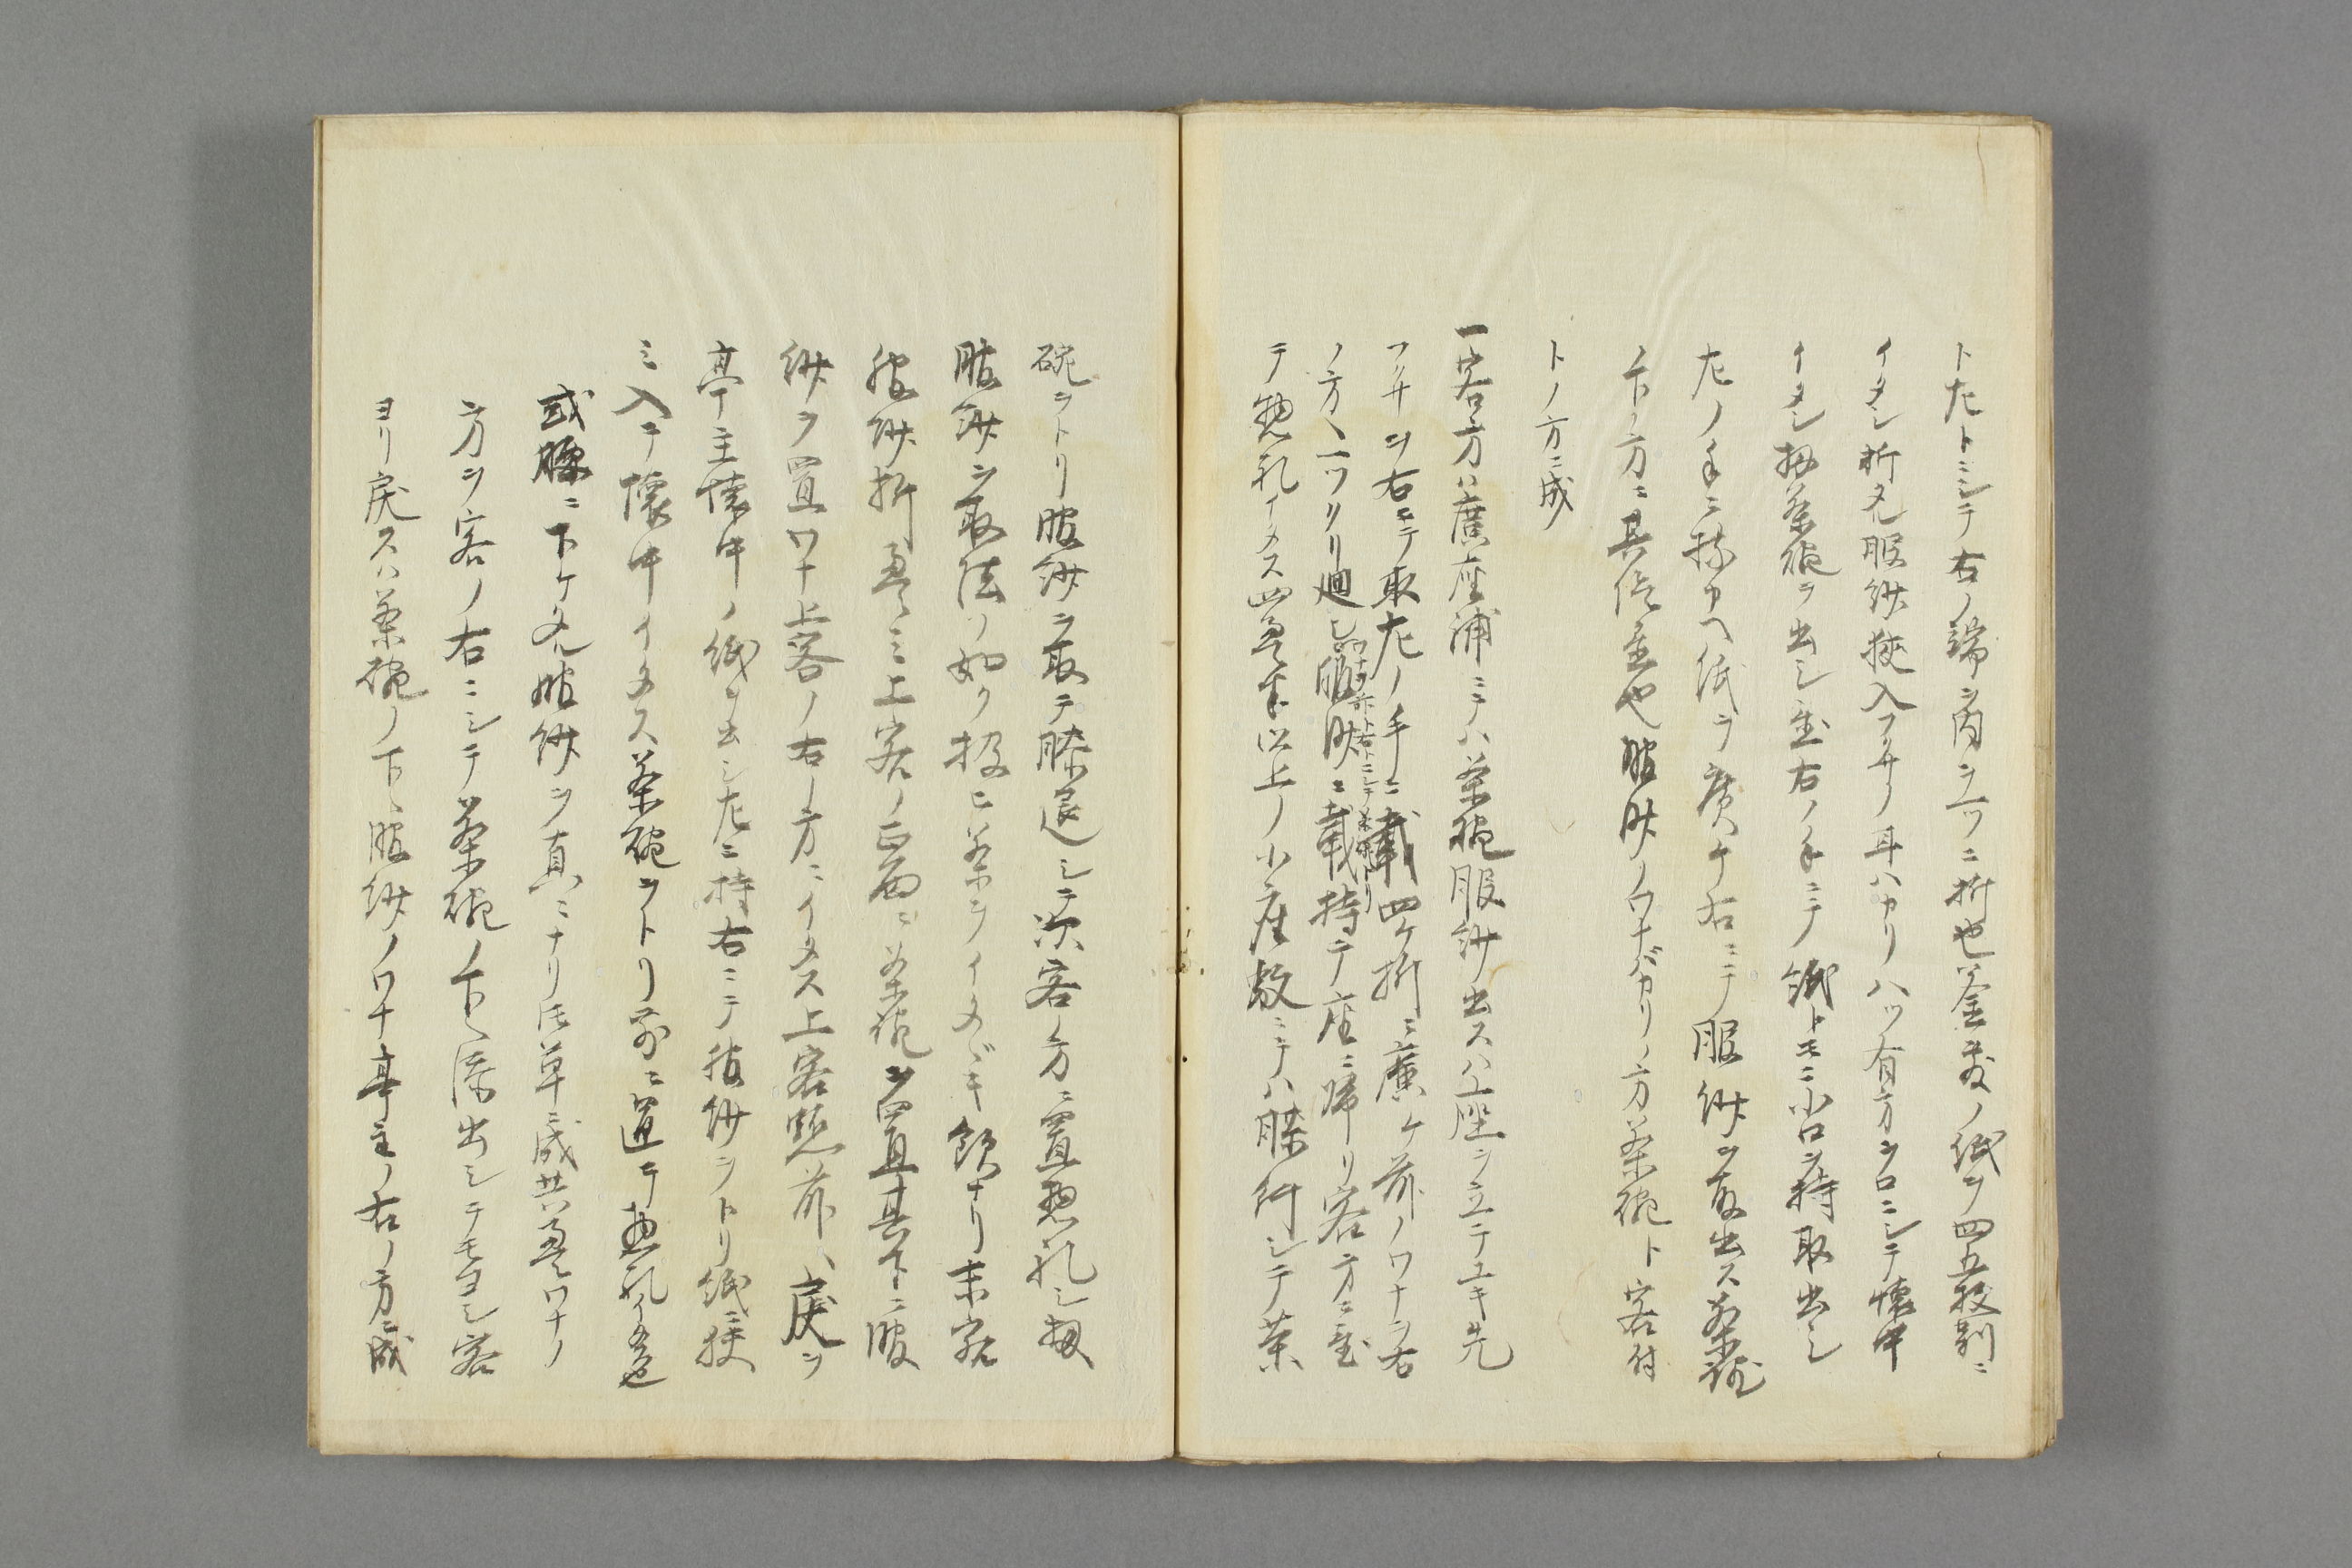 ト左トニシテ右ノ端ヲ内ヲ一ツニ折也釜敷ノ紙ヲ四五枚別ニ
イタシ折タル服紗狭入フクサノ耳ハカリハツ有方ヲ口ニシテ懐中
イタシ扨茶碗ヲ出シ置右ノ手ニテ紙トモニ小口ヲ持取出シ
左ノ手ニ持カヘ紙ヲ廣ケ右ニテ服紗ヲ取出ス茶碗
ノ下ノ方ニ其侭置也服紗ノワナバカリノ方茶碗ト客付
トノ方ニ成
一客方ハ廣座浦ニテハ茶碗服紗出スハ上座ヲ立テユキ先
フクサヲ右ニテ取左ノ手ニ載四ケ折ニ廣ケ前ノワナヲ右
ノ方ヘ一ツクリ廻シ服紗ニ載持テ座ニ帰リ客方ニ置
テ惣礼イタス四畳半以上ノ小座敷ニテハ膝行シテ茶
碗ヲトリ服紗ヲ取テ膝退シテ次客ノ方ニ置惣礼シ扨
服紗ヲ取法ノ如ク扱ヒ茶ヲイタヾキ飲ナリ末客
服紗折畳ミ上客ノ正面ニ茶碗ヲ置其下ニ服
紗ヲ置ワナ上客ノ右ノ方ニイタス上客亭前ヘ戻ヲ
亭主懐中ノ紙ヲ出シ左ニ持右ニテ服紗ヲトリ紙ニ挟
ミ入テ懐中イタス茶碗ヲトリ前ニ置テ惣礼イタス也
或膝ニ下ケタル服紗ヲ真ニナリ氐草ニ成共畳ワナノ
方ヲ客ノ右ニシテ茶碗ノ下ヘ添出シテモヨシ客
ヨリ戻スハ茶碗ノ下ヘ服紗ノワナ亭主ノ右ノ方ニ成